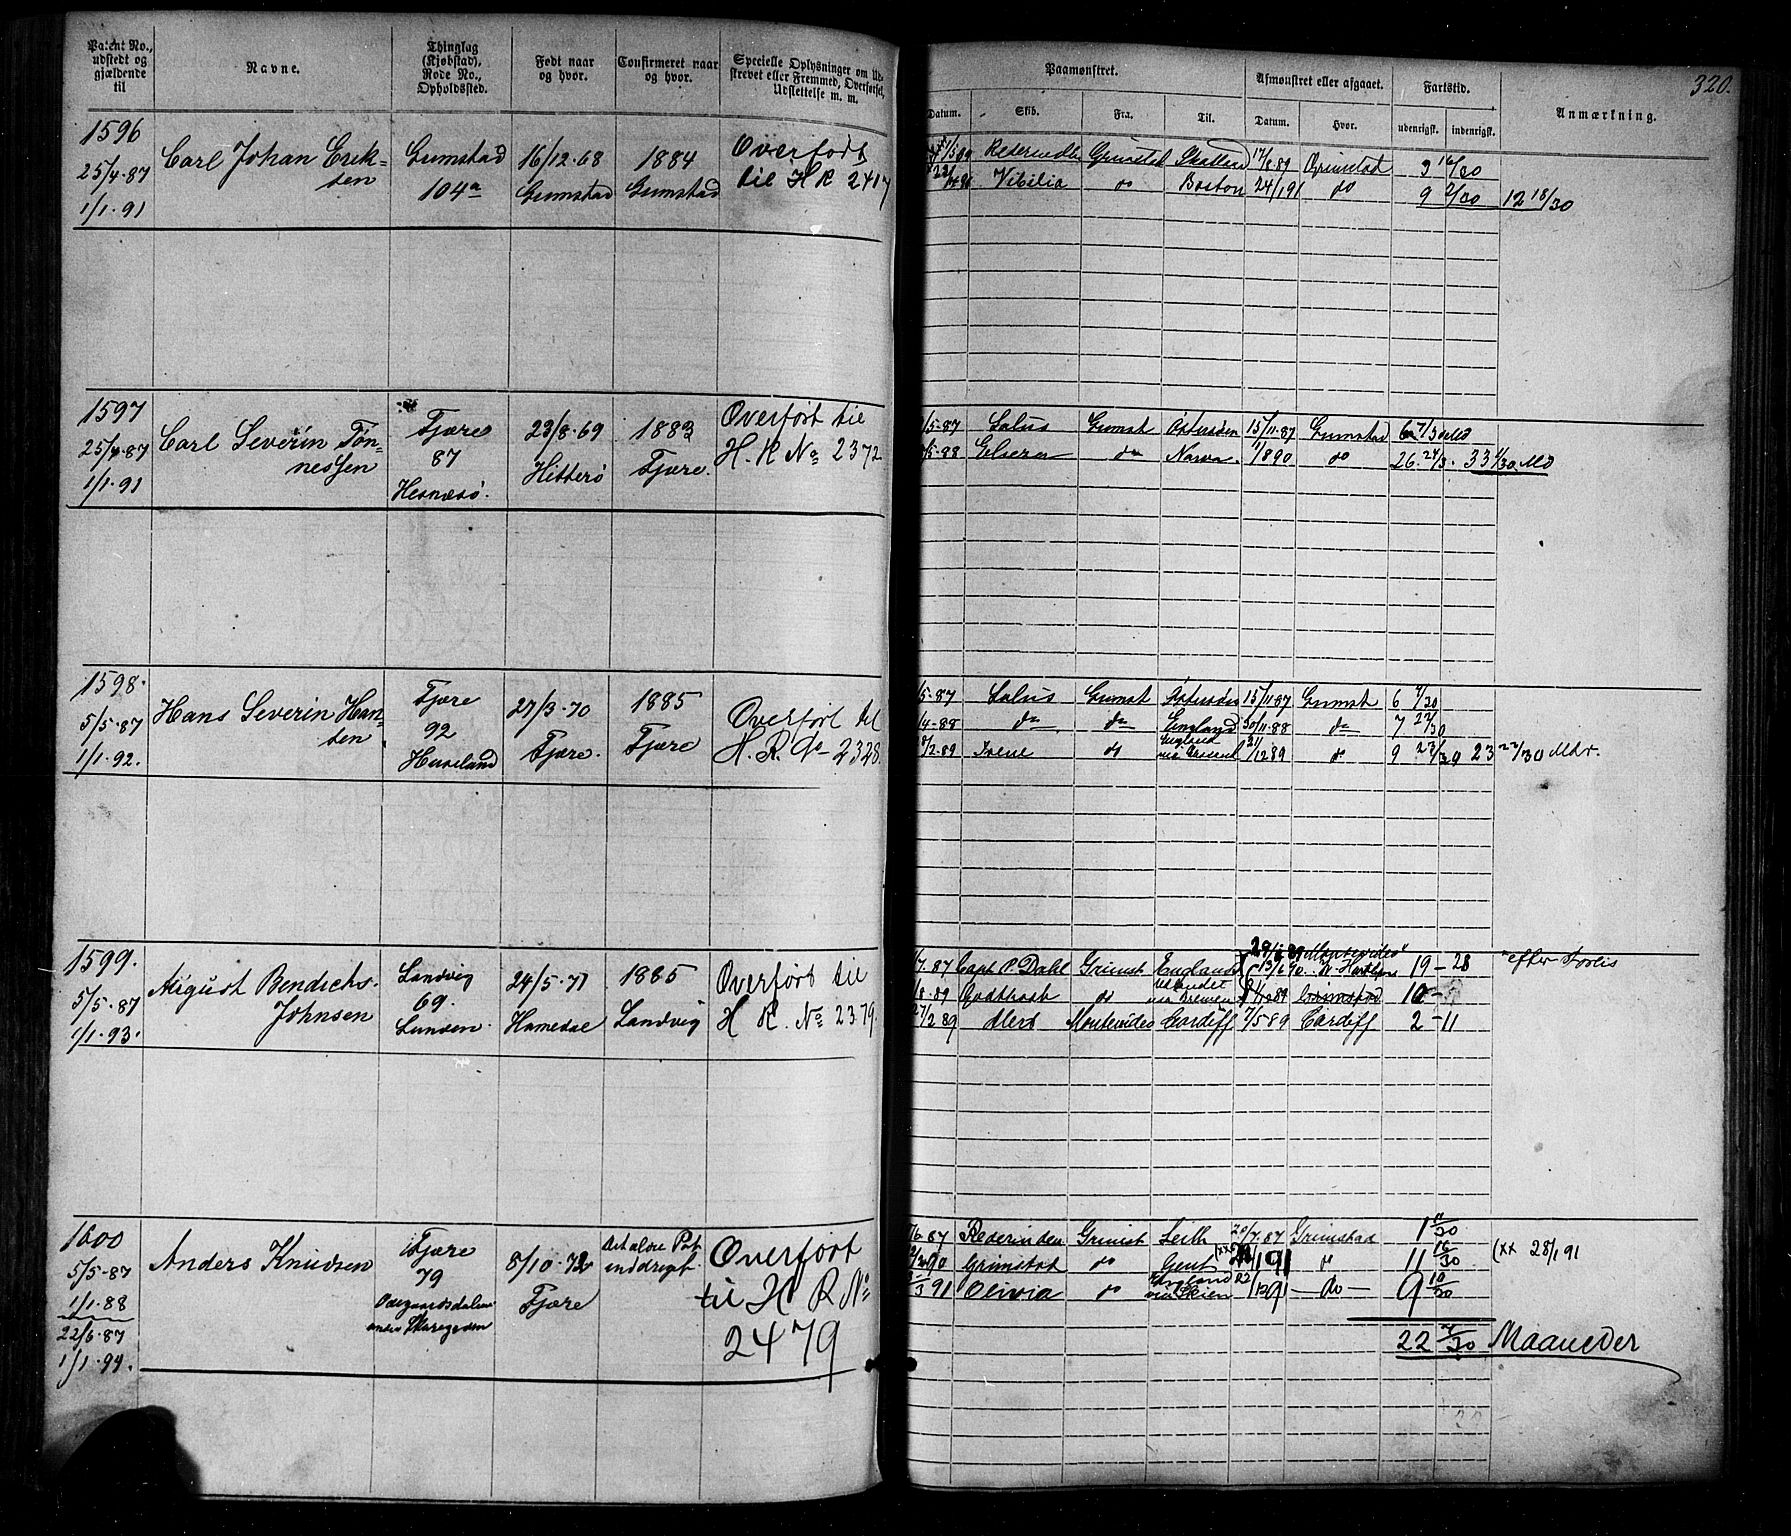 320.
Patent No., udstedt og gjældende til
Navne.
Thinglag (Kjøbstad), Rode No., Opholdssted.
Født naar og hvor.
Confirmeret naar og hvor.
Specielle Oplysninger om Udskrevet eller Fremmed, Overførsel, Udslettelse m. m.
Paamønstret.
Afmønstret eller afgaaet.
Fartstid.
Anmærkning.
Datum. Skib. Fra. Til. Datum. Hvor. udenrigsk. indenrigsk.
1596
25/4-87
1/1-91
Carl Johan Erik-
sen
Grimstad
104a
16/12-68
Grimstad
1884
Grimstad
Overført
til H R 2417
Grimstad Skotland 17/8 89 Grimstad 9 16/30
Vibilia do Boston 24/1 91 do 9 2/30 12 18/30
1597
25/4-87
1/1-91
Carl Severin Tøn-
nessen
Fjære
87
Hesnæsø.
23/8-69
Hitterø
1883
Fjære.
Overført til
H. R No 2372
/5-87 Salus Grimst Østersøen 15/11-87 Grimstad 6 7/30 Md
/5-88 do Narva 1/8 90 do 26. 24/3. 33 1/30 Md
1598.
5/5-87
1/1-92.
Hans Severin Han-
sen
Fjære
92
27/3-70
Fjære.
1885
Fjære
Overført til
H. R. No 2328
/5-87 Salus Grimst Østersøen 15/11 87 Grimst 6 7/30
/4-88 do do England 30/11-88 do 7 27/30
/2-89 Irene do England 21/12 89 do 9 23/30 23 27/30 Mdr.
1599.
5/5-87
1/1-93.
August Bendichs.
Johnsen
Landvig
69.
Lunden.
24/5-71
Hamedal
1885
Landvig
Overført til
H R. No 2379
/7.87 Capt P. Dahl Grimst England 13/6 90. 19-28 "efter Forlis
/8-89 Godthaab do via Bremen Grimstad 10-
27/2 89 Montevideo Cardiff 7/5 89 Cardiff 2-11
1600
5/5-87
1/1-88
22/6-87
1/1-94.
Anders Knudsen
Fjære
79
8/10-72
Fjære
Overført
til H R No
2479
/6-87 Rederinden Grimst Leith 20/7.87 Grimstad 1 11/30
Grimstad do Gent (xx 91 do 11 16/30 (xx 28/1 91
/3 91 Olivia do England via Skien do 9 10/30
22 7/30 Maaneder